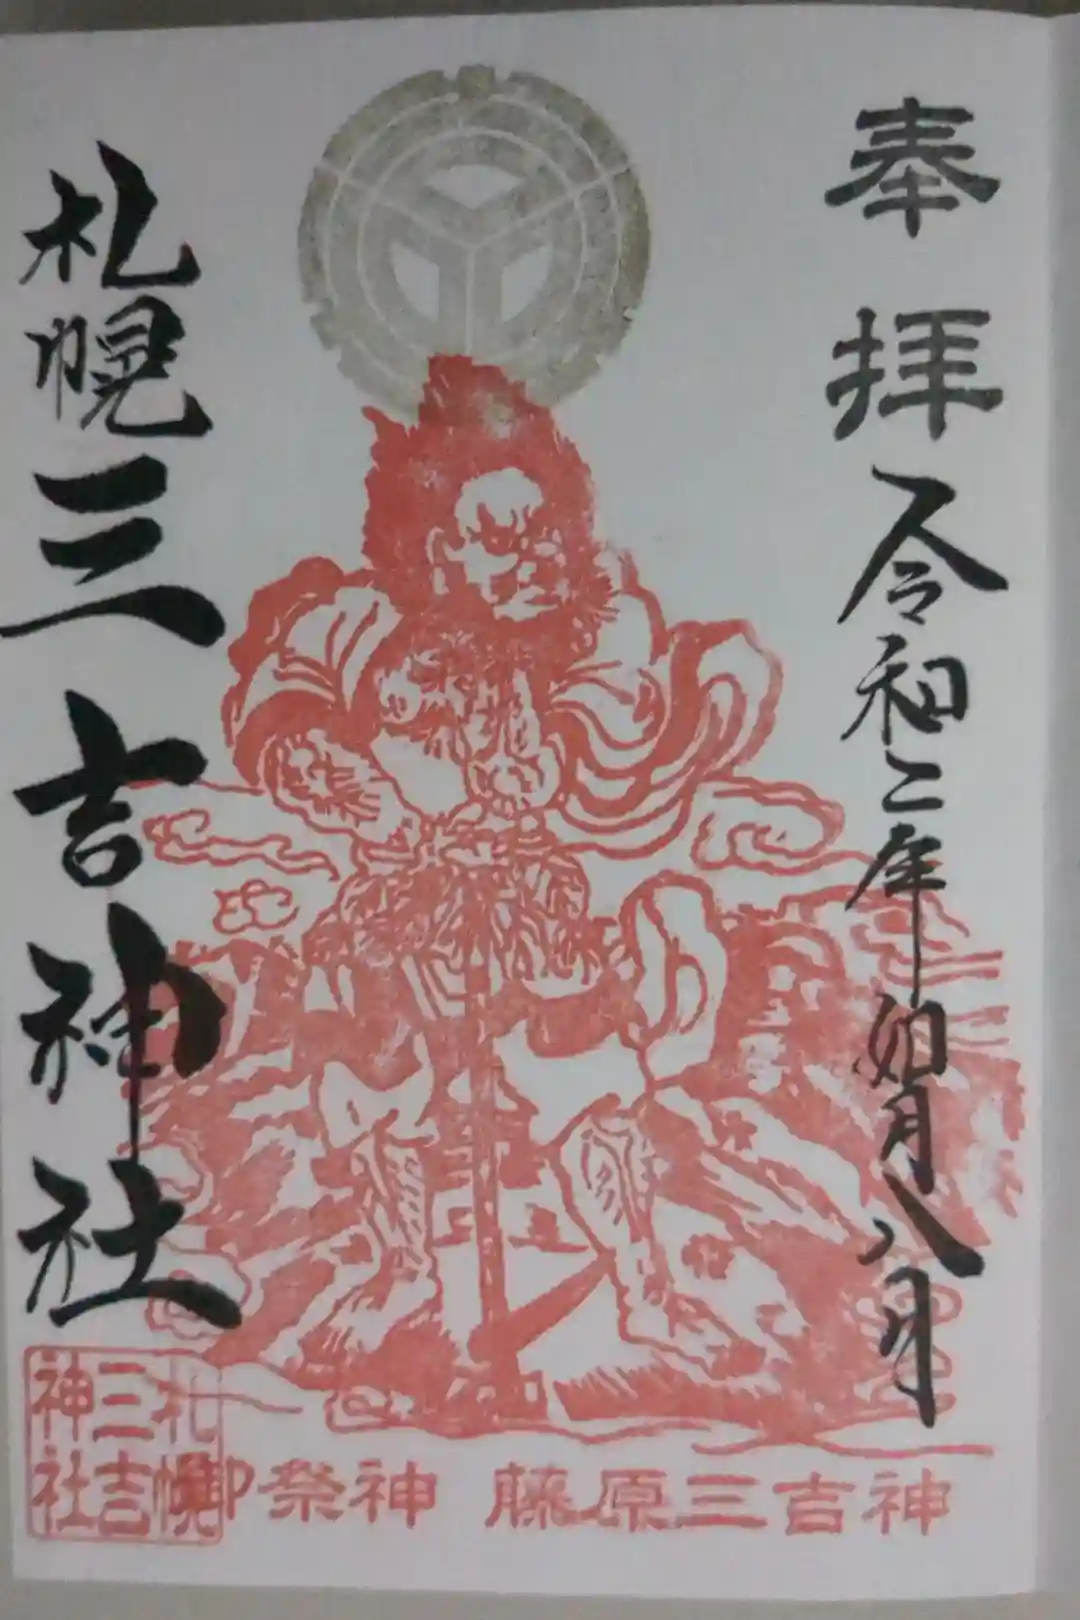 奉拝
令和二年如月八日
札幌三吉神社
札幌
三吉
神社
御祭神 藤原三吉神